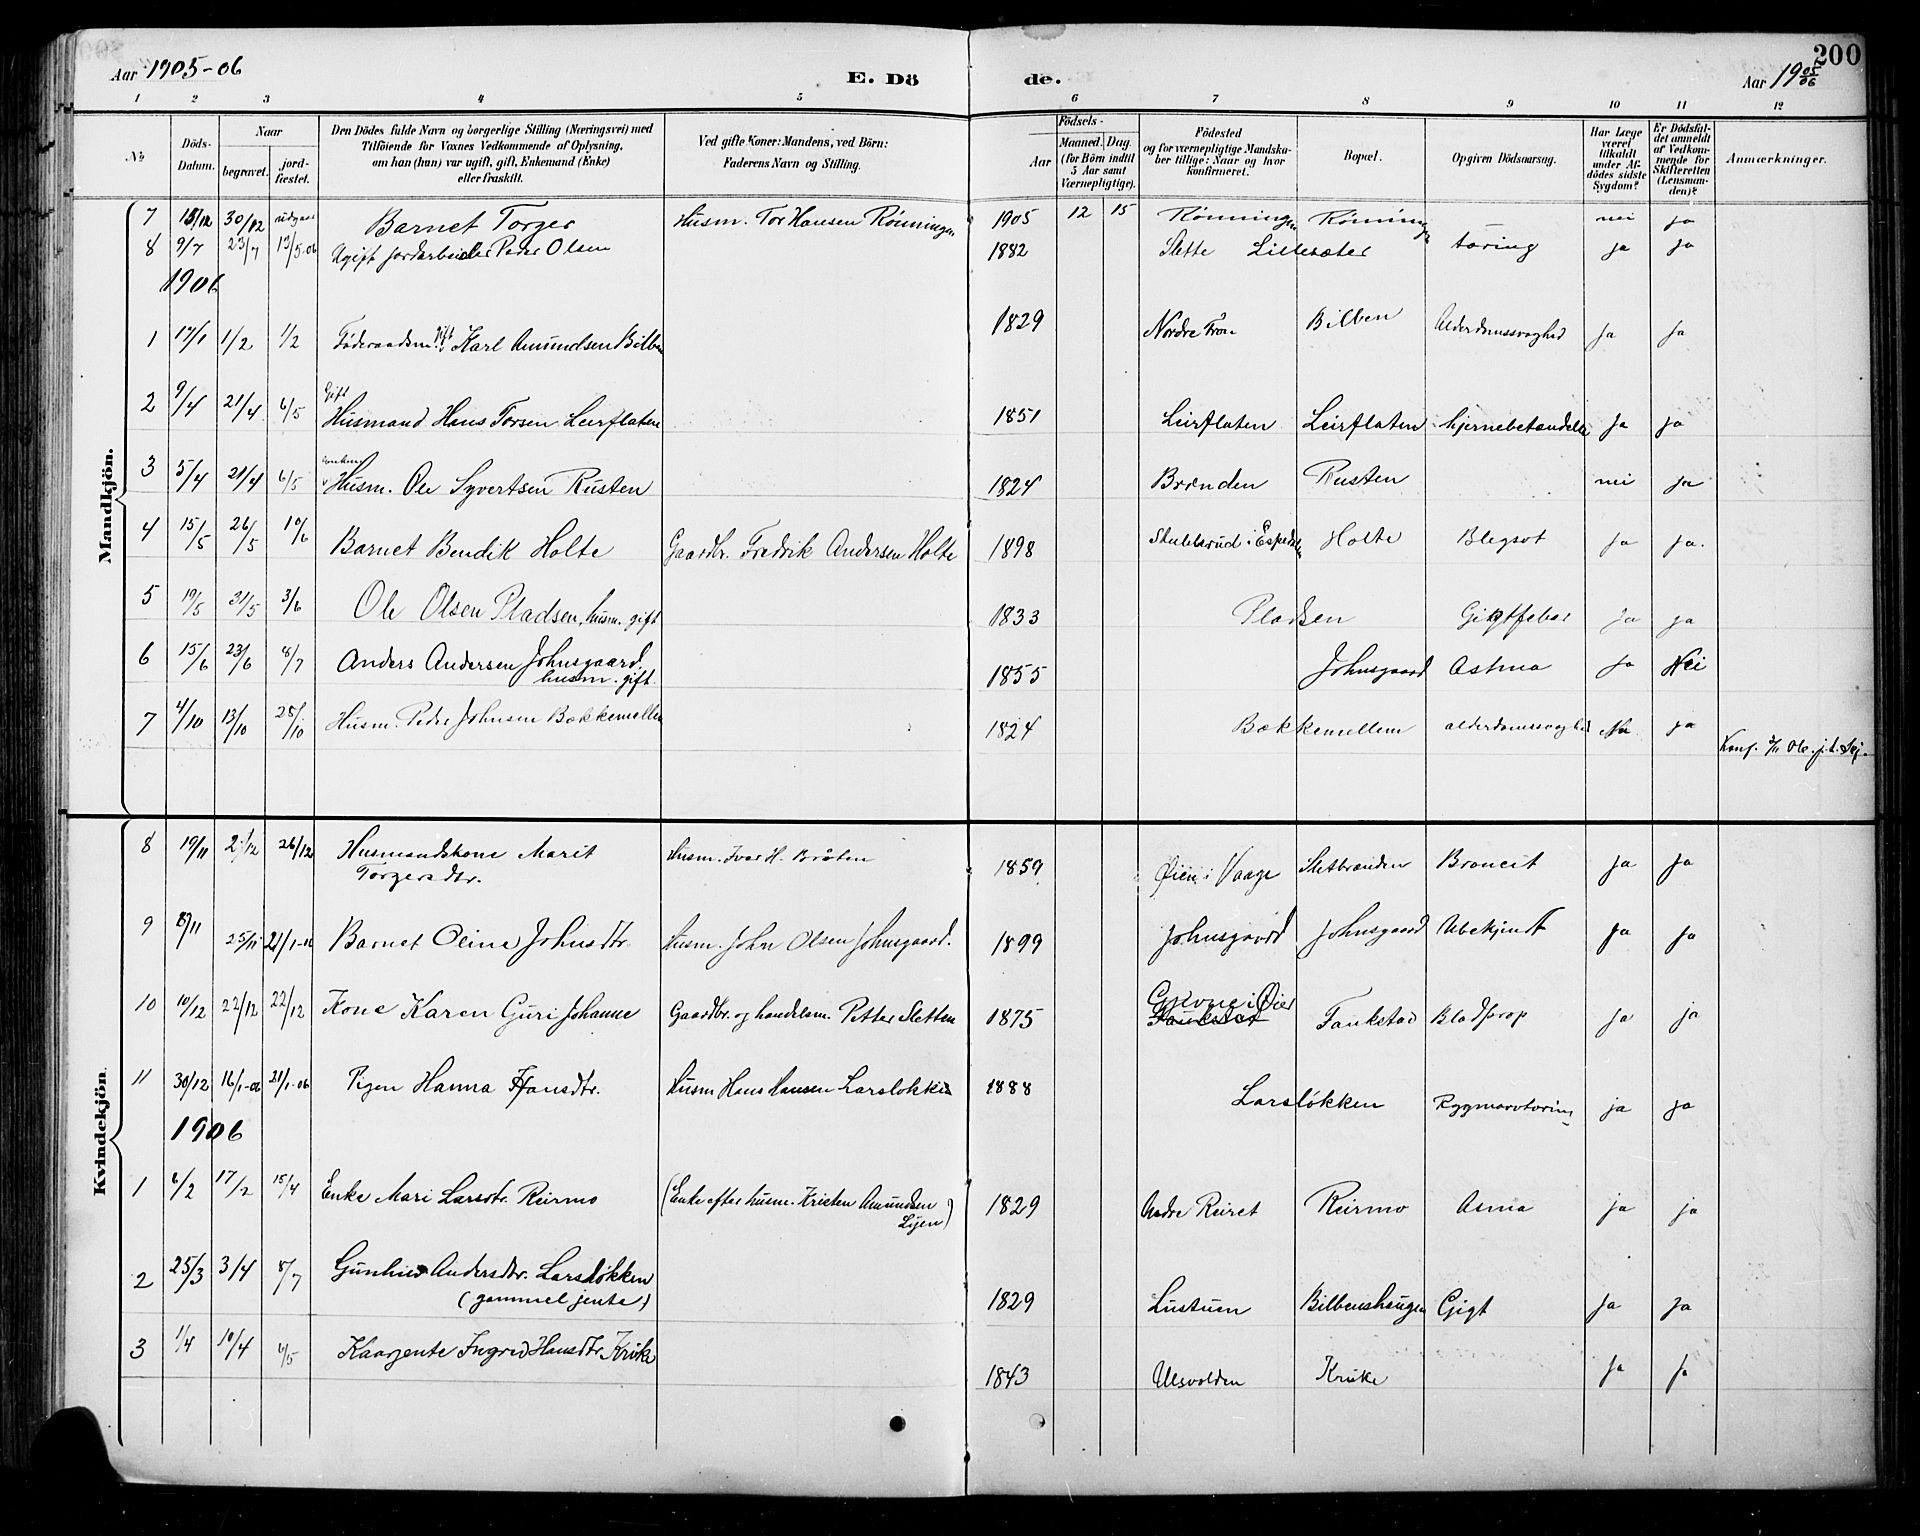 200
Aar 1905-06 E. Dö de. Aar 19 05/06
1 2 3 4 5 6 7 8 9 10 11 12
No
Döds-Datum.
Naar
begravet.
jord-fæstet.
Den Dödes fulde Navn og borgerlige Stilling (Næringsvei) med
Tilföiende for Voxnes Vedkommende af Oplysning,
om han (hun) var ugift, gift, Enkemand (Enke)
eller fraskilt.
Ved gifte Koner: Mandens, ved Börn:
Faderens Navn og Stilling.
Födsels-
Aar
Maaned. Dag.
(for Börn indtil
5 Aar samt
Værnepligtige).
Födested
og for værnepligtige Mandska-
ber tillige: Naar og hvor
konfirmeret.
Bopæl.
Opgiven Dödsaarsag.
Har Læge
været
tilkaldt
under Af-
dödes sidste
Sygdom?
Er Dödsfal-
det anmeldt
af Vedkom-
mende for
Skifteretten
(Lensman-
den)?
Anmærkninger.
Mandkjön.
7 18/12 30/12 udgaar Barnet Torger Husm. Tor Hansen Rönningen 1905 12 15 Rönningen Rönningen nei ja
8 9/7 23/7 13/5-06 Ugift jordarbeider Peder Olsen 1882 Slette Lillesæter tæring ja ja
1906
1 17/1 1/2 1/2 Föderaadsm. gift Karl Amundsen Bilben 1829 Nordre Fron Bilben Alderdomssvaghed ja ja
2 9/4 21/4 6/5 Gift Husmand Hans Torsen Leirflaten 1851 Leirflaten Leirflaten hjernebetændelse ja ja
3 5/4 21/4 6/5 Husm. Ole Syvertsen Rusten 1824 Brænden Rusten nei ja
4 15/5 26/5 10/6 Barnet Bendik Holte Gaardbr. Fredrik Andersen Holte 1898 Stubberud i Espedalen Holte Blegsot ja ja.
5 19/5 31/5 3/6 Ole Olsen Pladsen, husm. gift 1833 Pladsen Gigtfeber ja ja
6 15/6 23/6 8/7 Anders Andersen Johnsgaard
husm. gift. 1855 Johnsgaard Astma ja Nei
7 4/10 13/10 28/10 Husm. Peder Johnsen Bækkemellem 1824 Bækkemellem alderdomssvaghed Nei ja
Kvindekjön.
8 19/11 2/12 26/12 Husmandskone Marit
Torgersdtr. Husm. Ivar H. Bråten 1859 Öien i Vaage Sletbrænden Broncit ja ja
9 17/11 25/11 21/1-06 Barnet Oline Johnsdtr. Husm. John Olsen Johnsgaard. 1899 Johnsgaard Johnsgaard Ubekjendt ja ja
10 10/12 22/12 22/12 Kone Karen Guri Johanne Gaardbr. og handelsm. Petter Sletten 1875 i Öier
Faukstad Faukstad Blodprop ja ja
11 30/12 16/1-06 21/1-06 Pigen Hanna Hansdtr. Husm Hans Hansen Larslökken 1888 Larslökken Rygmarvtæring ja ja
1906
1 6/2 17/2 15/4 Enke Mari Larsdtr. Reirmo (Enke efter husm. Kristen Amundsen
Lijen) 1829 Nedre Reiret Reirmo Asma ja ja
2 25/3 3/4 8/7 Gunhild Andersdtr. Larslökken
(gammel jente) 1829 Lustum Bilbenshaugen Gigt ja ja
3 1/4 10/4 6/5 Kaarjente Ingrid Hansdtr. Kruke 1843 Ulsvolden Kruke ja ja